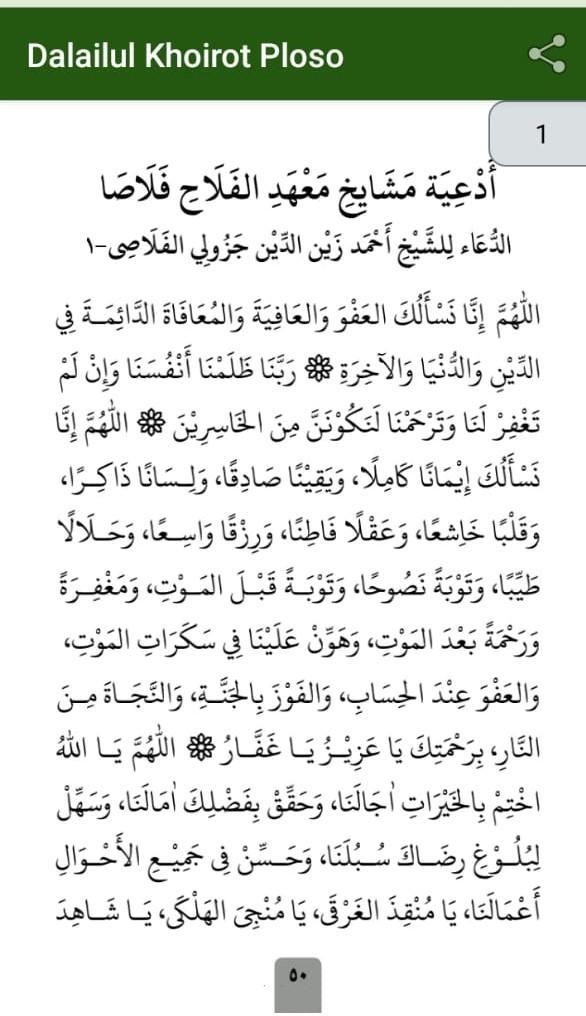 Dalailul Khoirot Ploso
1
أَدْعِيَة مَشَايِخِ مَعْهَدِ الفَلَاحِ فَلَاصَا
الدُّعَاء لِلشَّيْخِ أَحْمَد زَيْن الدِّيْن جَزُولِي الفَلَاصِى-١
اللّٰهُمَّ إِنَّا نَسْأَلُكَ العَفْوَ وَالعَافِيَةَ وَالمُعَافَاةَ الدَّائِمَـةَ فِي
الدِّيْنِ وَالدُّنْيَا وَالآخِرَةِ ۞ رَبَّنَا ظَلَمْنَا أَنْفُسَنَا وَإِنْ لَمْ
تَغْفِرْ لَنَا وَتَرْحَمْنَا لَنَكُوْنَنَّ مِنَ الخَاسِرِيْنَ ۞ اللّٰهُمَّ إِنَّا
نَسْأَلُكَ إِيْمَانًا كَامِلًا، وَيَقِيْنًا صَادِقًا، وَلِـسَانًا ذَاكِـرًا،
وَقَلْبًا خَاشِعًا، وَعَقْلًا فَاطِنًا، وَرِزْقًا وَاسِـعًا، وَحَـلَالًا
طَيِّبًا، وَتَوْبَةً نَصُوحًا، وَتَوْبَـةً قَبْـلَ المَـوْتِ، وَمَغْفِـرَةً
وَرَحْمَةً بَعْدَ المَوْتِ، وَهَوِّنْ عَلَيْنَا فِي سَكَرَاتِ المَوْتِ،
وَالعَفْوَ عِنْدَ الحِسَابِ، وَالفَوْزَ بِالجَنَّـةِ، وَالنَّجَـاةَ مِـنَ
النَّارِ، بِرَحْمَتِكَ يَا عَزِيْـزُ يَـا غَفَّـارُ ۞ اللّٰهُمَّ يَـا اللّٰهُ
اخْتِمْ بِالخَيْرَاتِ اٰجَالَنَا، وَحَقِّقْ بِفَضْلِكَ اٰمَالَنَا، وَسَهِّلْ
لِبُلُـوْغِ رِضَـاكَ سُـبُلَنَا، وَحَـسِّنْ فِى جَمِيْـعِ الأَحْـوَالِ
أَعْمَالَنَا، يَا مُنْقِذَ الغَرْقَى، يَا مُنْجِىَ الهَلْكَى، يَـا شَـاهِدَ
٥٠